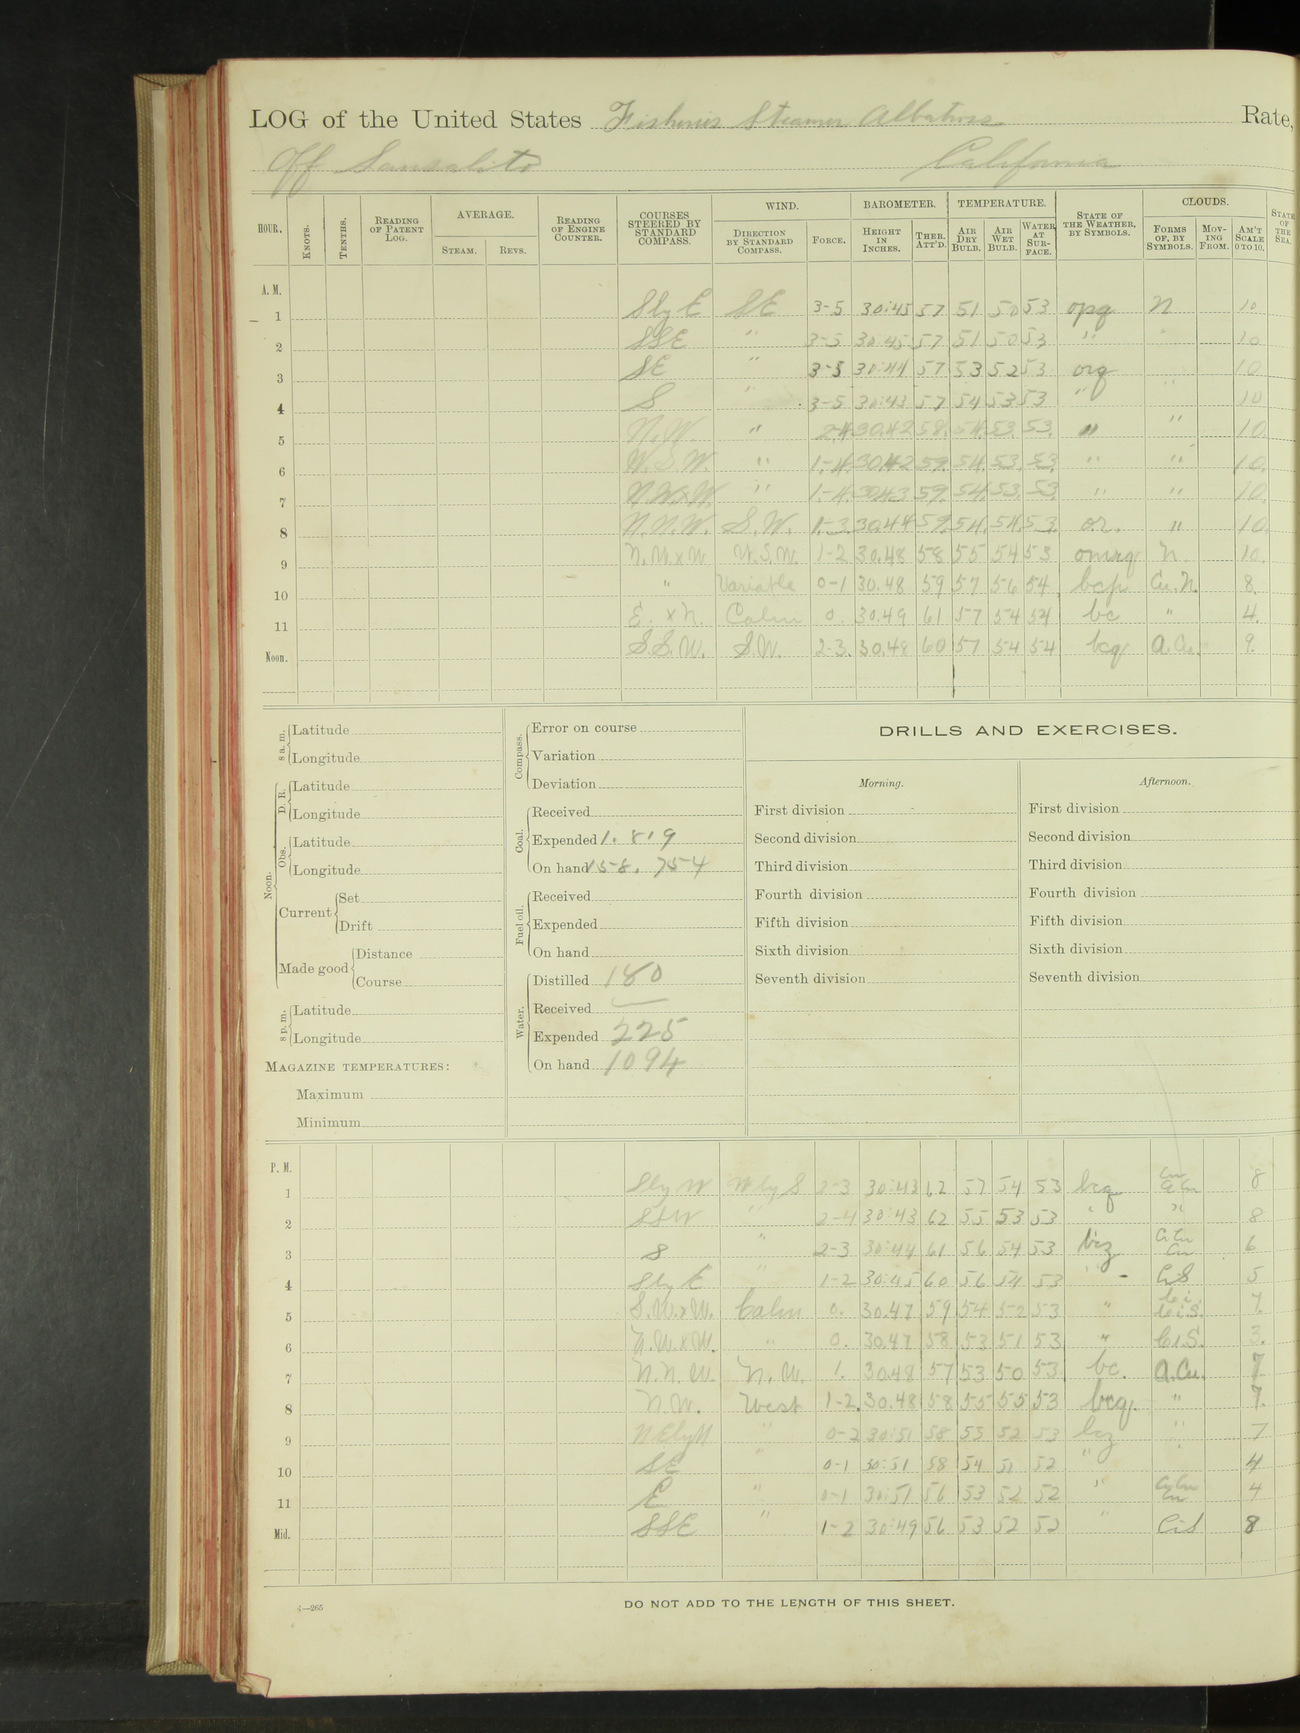 LOG of the United States Fisheries Steamer Albatross Rate,
Off Sausalito California
HOUR. KNOTS. TENTHS. READING OF PATENT LOG. AVERAGE. STEAM. REVS. READING OF ENGINE COUNTER. COURSES STEERED BY STANDARD COMPASS. WIND. DIRECTION BY STANDARD COMPASS. FORCE. BAROMETER. HEIGHT IN INCHES. THER. ATT'D. TEMPERATURE. AIR DRY BULB. AIR WET BULB. WATER AT SURFACE. STATE OF THE WEATHER, BY SYMBOLS. CLOUDS. FORMS OF, BY SYMBOLS. MOVING FROM. AM'T SCALE 0 TO 10. STATE OF THE SEA.
A. M.
1 Sly E SE 3-5 30.45 57 51 50 53 opq N 10
2 SSE " 3-5 30.45 57 51 50 53 " " 10
3 SE " 3-5 30.44 57 53 52 53 orq 10
4 S " 3-5 30.43 57 54 53 53 " " 10
5 N.W. " 2-4 30.42 58. 54. 53. 53. " " 10.
6 W.S.W. " 1-4. 30.42 59. 54. 53. 53. " " 10.
7 N.W.xW. " 1-4. 30.43 59. 54 53. 53. " " 10.
8 N.N.W. S.W. 1-3. 30.44 59. 54. 54. 53. or. " 10.
9 N.W.xW W.S.W. 1-2 30.48 58 55 54 53 omrq N. 10.
10 " Variable 0-1 30.48 59 57 56 54 bcp Cu.N. 8.
11 E.xN. Calm 0. 30.49 61 57 54 54 bc " 4.
Noon. S.S.W. S.W. 2-3. 30.48 60 57 54 54 bcq A.Cu. 9.
8 a.m. Latitude
Longitude
Noon. D. R. Latitude
Longitude
Obs. Latitude
Longitude
Current Set
Drift
Made good Distance
Course
8 p.m. Latitude
Longitude
MAGAZINE TEMPERATURES:
Maximum
Minimum
Compass. Error on course
Variation
Deviation
Coal. Received
Expended 1.819
On hand 158.754
Fuel oil. Received
Expended
On hand
Water. Distilled 180
Received —
Expended 225
On hand 1094
DRILLS AND EXERCISES.
Morning. Afternoon.
First division First division
Second division Second division
Third division Third division
Fourth division Fourth division
Fifth division Fifth division
Sixth division Sixth division
Seventh division Seventh division
P. M.
1 Sly W Wly S 2-3 30.43 62 57 54 53 bcq Cu A Cu 8
2 SSW " 2-4 30.43 62 55 53 53 " " 8
3 S " 2-3 30.44 61 56 54 53 bcz Ci Cu Cu 6
4 Sly E " 1-2 30.45 60 56 54 53 " - CiS 5
5 S.W.xW. Calm 0. 30.47 59 54 52 53 " Ci. Ci.S. 7.
6 N.W.xW. " 0. 30.47 58 53 51 53 " Ci.S. 3.
7 N.N.W. N.W. 1. 30.48 57 53 50 53 bc. A.Cu. 7
8 N.W. West 1-2. 30.48 58 55 55 53 bcq. " 7.
9 NEly N " 0-2 30.51 58 55 52 53 bcz " 7
10 SE " 0-1 30.51 58 54 51 52 " " 4
11 E " 0-1 30.51 56 53 52 52 " 4
Mid. SSE " 1-2 30.49 56 53 52 52 " CiS 8
DO NOT ADD TO THE LENGTH OF THIS SHEET.